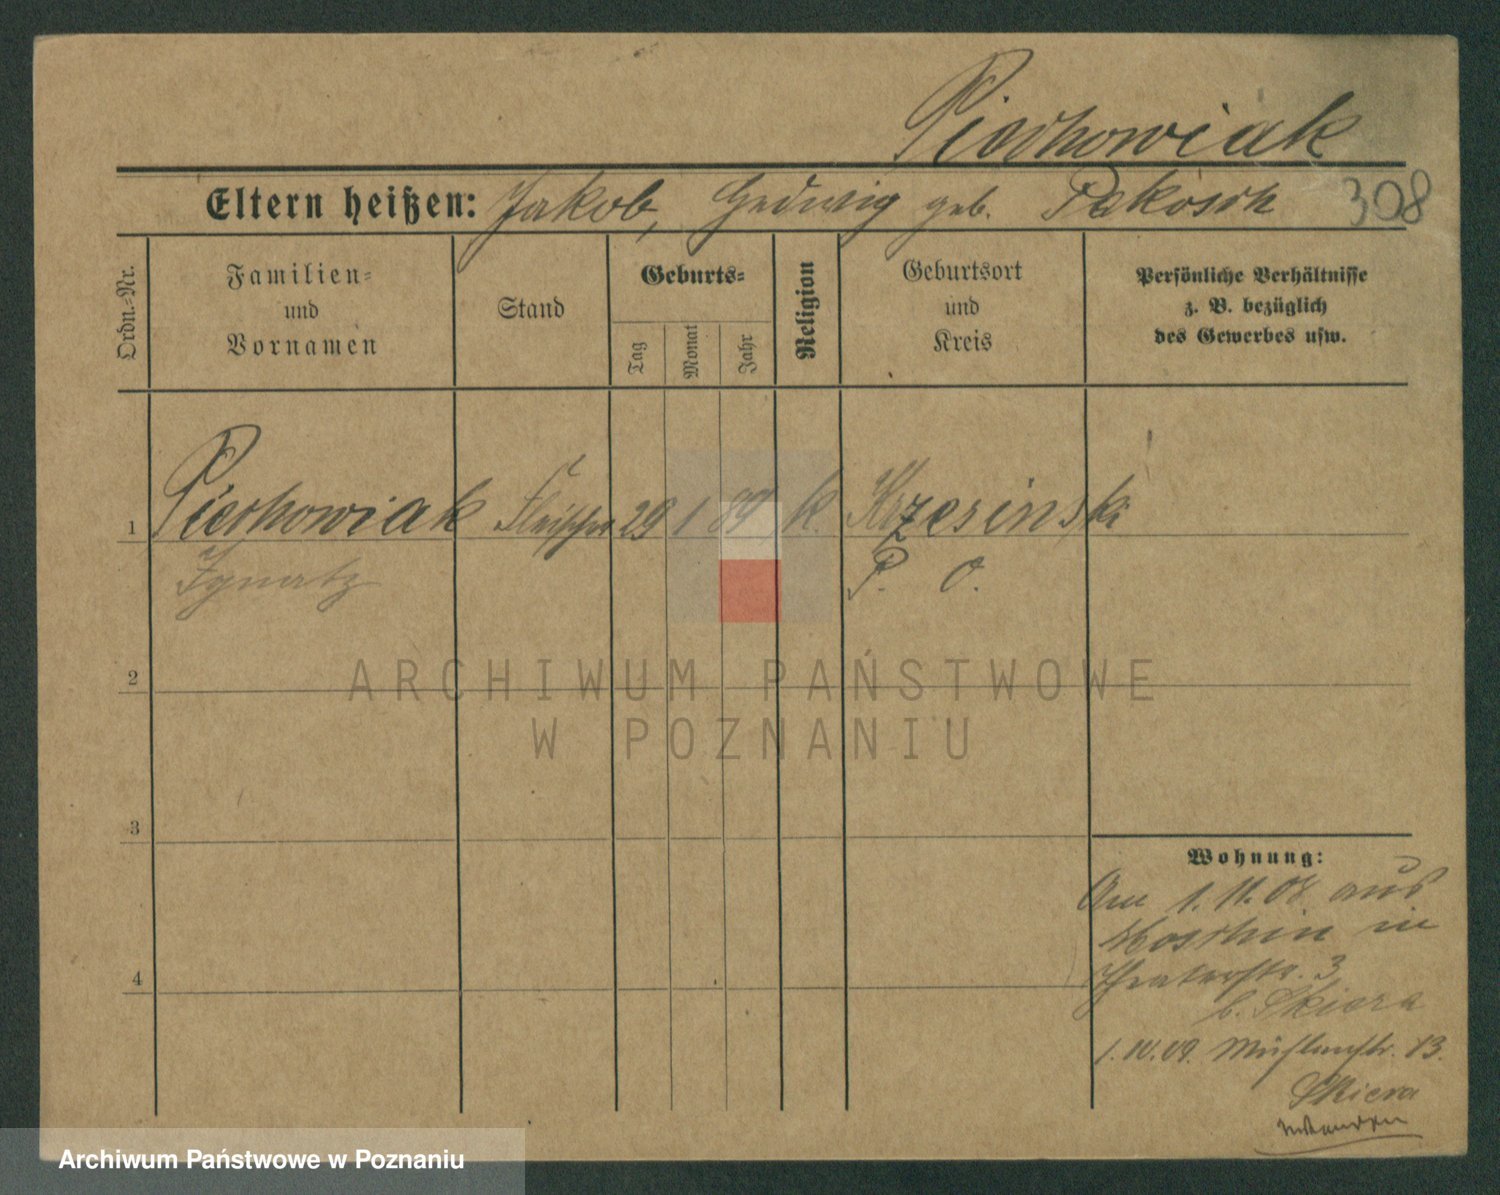 Piechowiak
Eltern heißen: Jakob, Hedwig geb. Pakosch 308
Ordn.-Nr.
Familien-
und
Vornamen
Stand
Geburts-
Tag
Monat
Jahr
Religion
Geburtsort
und
Kreis
Persönliche Verhältnisse
z. B. bezüglich
des Gewerbes usw.
1 Piechowiak Fleischer 29 1 89 k. Krzesinski
Ignatz P. O.
2
3
4
Wohnung:
Am 1.11.08 aus
Moschin in
Theaterstr. 3
b. Skiera
1.10.09. Mühlenstr. 13.
Skiera
ARCHIWUM PAŃSTWOWE
W POZNANIU
Archiwum Państwowe w Poznaniu